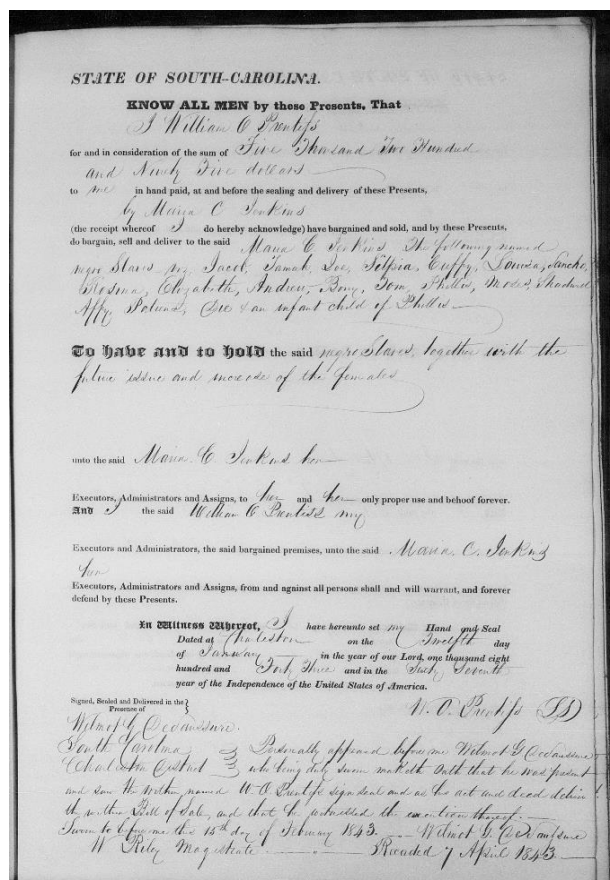 STATE OF SOUTH-CAROLINA.
KNOW ALL MEN by these Presents, That
I William O Prentiss
for and in consideration of the sum of Five Thousand Two Hundred
and Ninety Five dollars
to me in hand paid, at and before the sealing and delivery of these Presents,
by Maria C Jenkins
(the receipt whereof I do hereby acknowledge) have bargained and sold, and by these Presents,
do bargain, sell and deliver to the said Maria C Jenkins The following named
negro Slaves viz, Jacob, Tamah, Cuffy, Louisa, Sancho,
Rosina, Elizabeth, Andrew, Bony, Tom, Phillis, Moses, Shadrach
Affy, & an infant child of Phillis
To have and to hold the said negro Slaves, together with the
future issue and increase of the females
unto the said Maria C. Jenkins her
Executors, Administrators and Assigns, to her and her only proper use and behoof forever.
And I the said William O Prentiss my
Executors and Administrators, the said bargained premises, unto the said Maria C. Jenkins
her
Executors, Administrators and Assigns, from and against all persons shall and will warrant, and forever
defend by these Presents.
In Witness Whereof, I have hereunto set my Hand and Seal
Dated at Charleston on the Twelfth day
of January in the year of our Lord, one thousand eight
hundred and Forty Three and in the Sixty Seventh
year of the Independence of the United States of America.
Signed, Sealed and Delivered in the }
Presence of
W. O. Prentiss (LS)
Wilmot G Desaussure.
South Carolina } Personally appeared before me Wilmot G Desaussure
Charleston District } who being duly sworn maketh Oath that he was present
and saw the within named W O Prentiss sign seal and as his act and deed deliver
the within Bill of Sale, and that he witnessed the execution thereof.
Sworn to before me this 15th day of February 1843. Wilmot G. Desaussure
W Riley Magistrate Recorded 7 April 1843